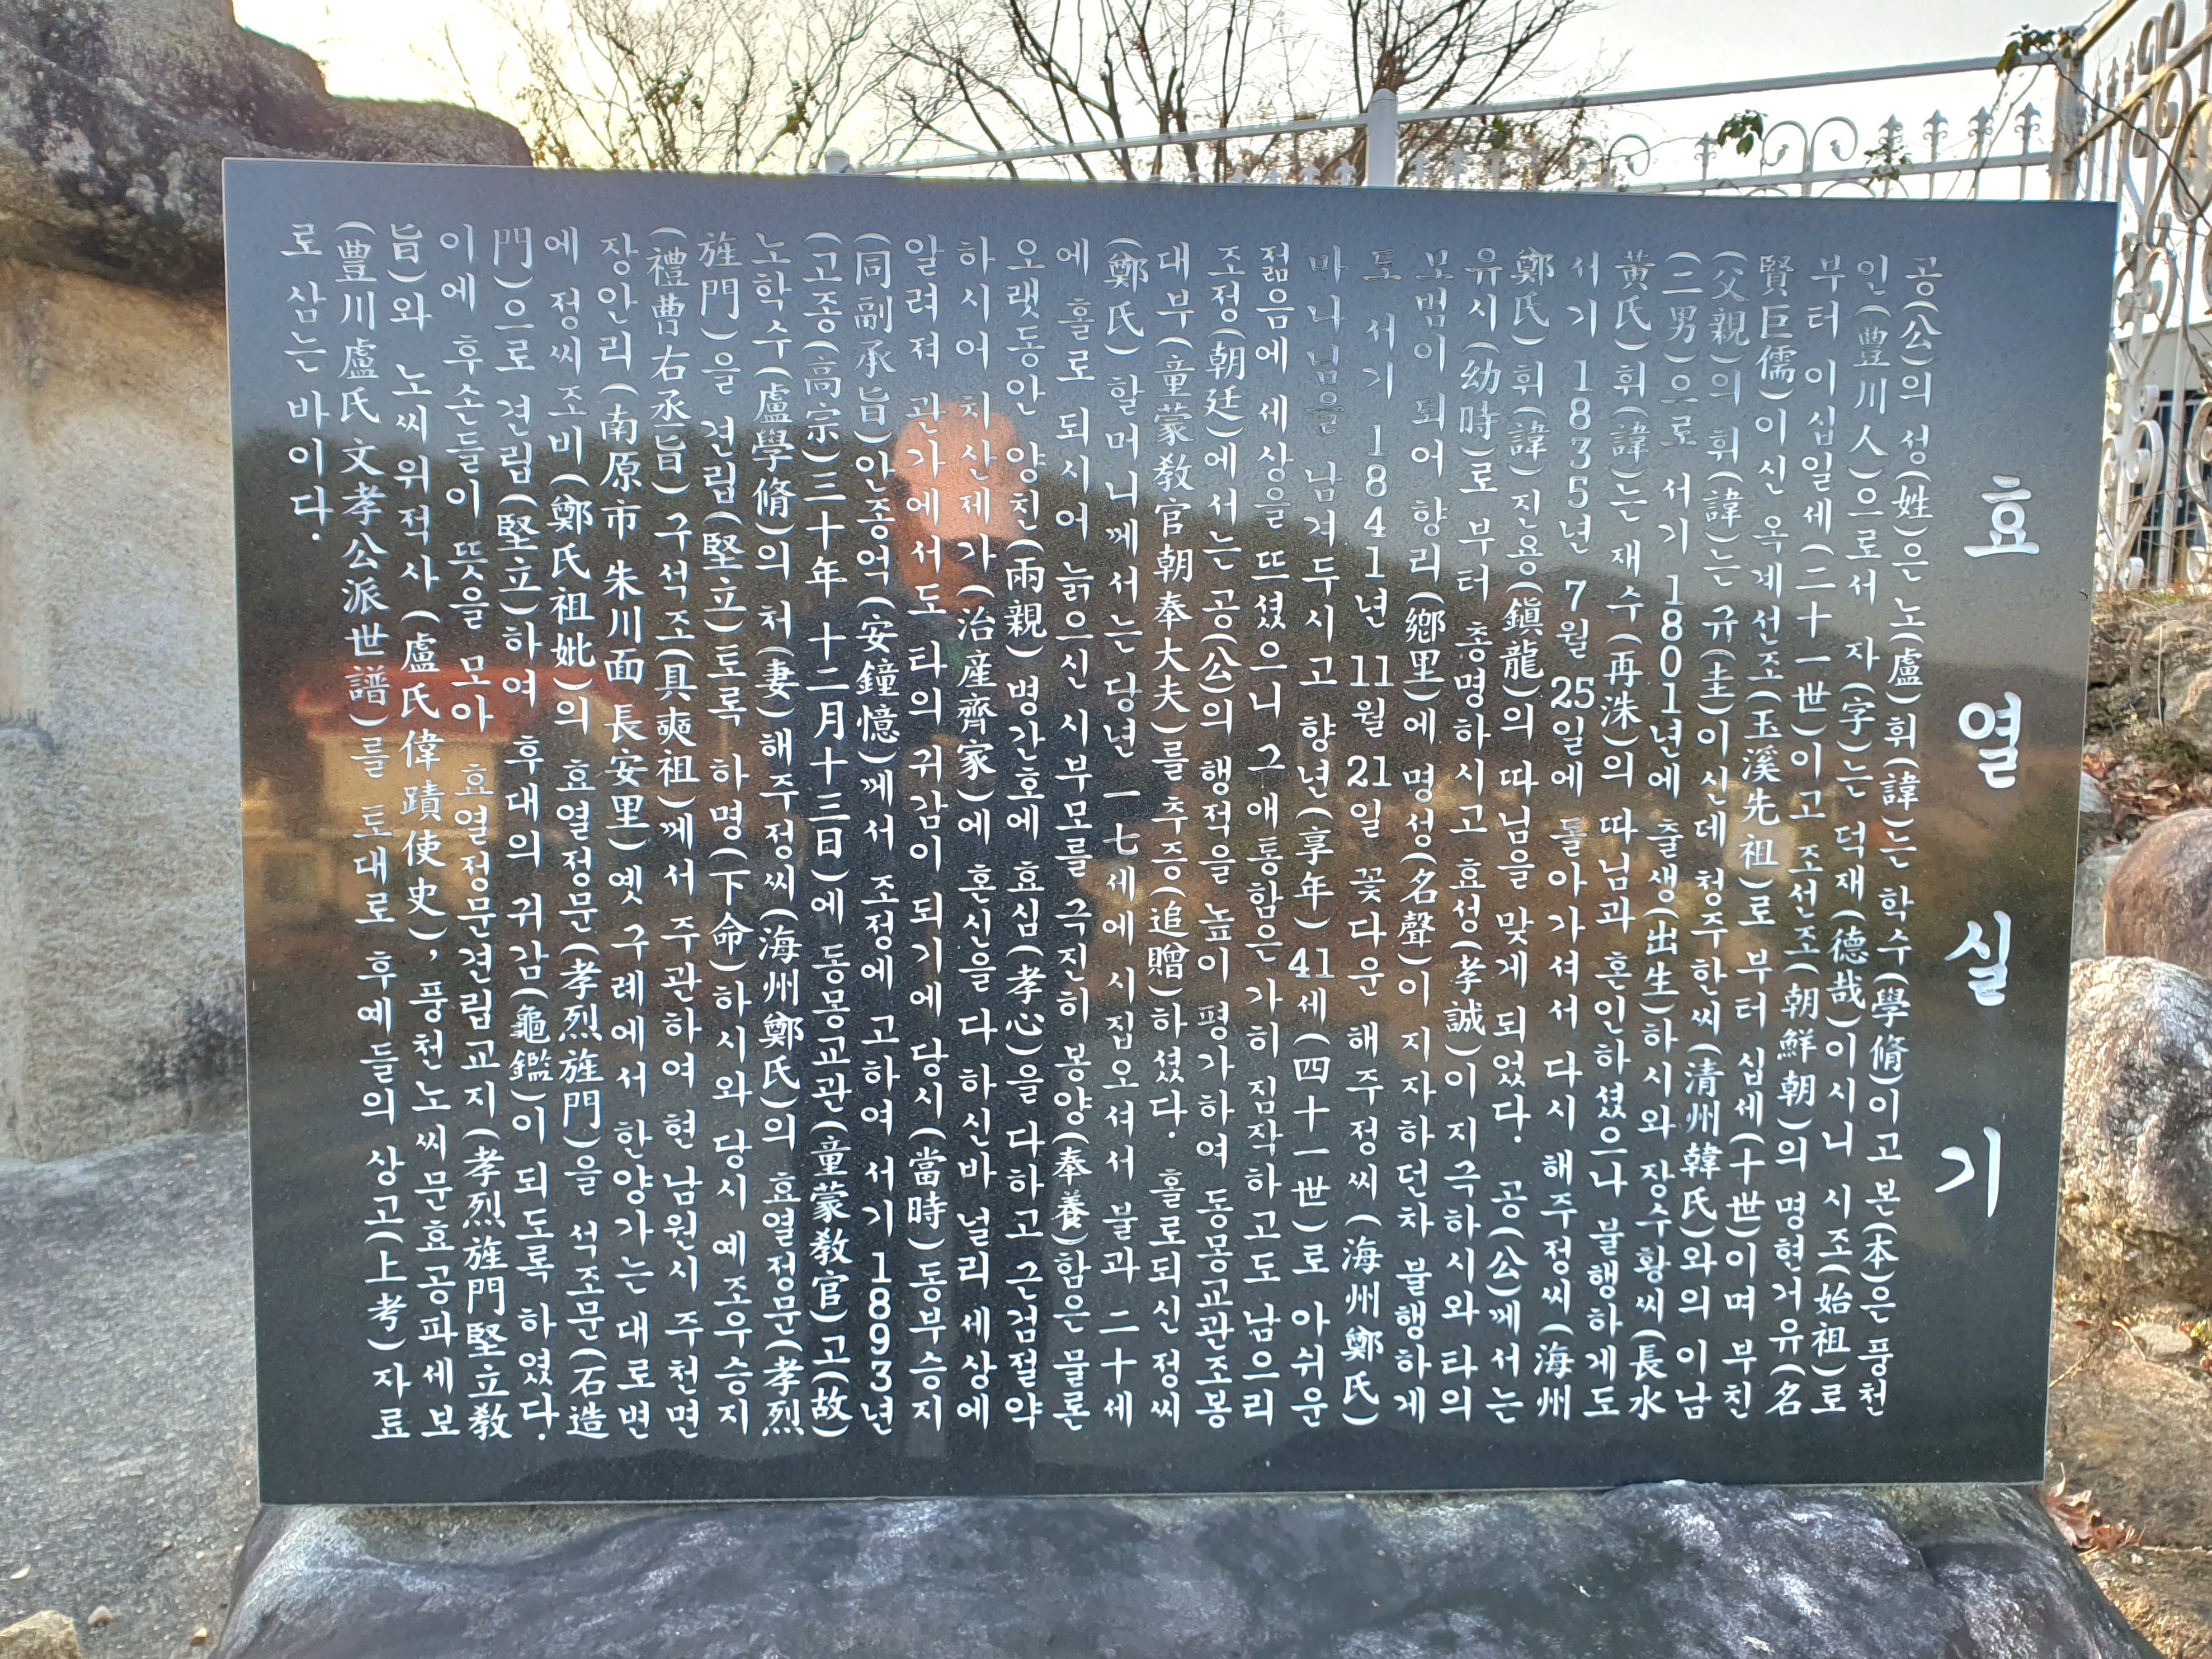 효열실기
공(公)의 성(姓)은 노(盧) 휘(諱)는 학수(學脩)이고 본(本)은 풍천
인(豊川人)으로서 자(字)는 덕재(德哉)이시니 시조(始祖)로
부터 이십일세(二十一世)이고 조선조(朝鮮朝)의 명현거유(名
賢巨儒)이신 옥계선조(玉溪先祖)로 부터 십세(十世)이며 부친
(父親)의 휘(諱)는 규(圭)이신데 청주한씨(清州韓氏)와의 이남
(二男)으로 서기 1801년에 출생(出生)하시와 장수황씨(長水
黃氏)휘(諱)는 재수(再洙)의 따님과 혼인하셨으나 불행하게도
서기 1835년 7월 25일에 돌아가셔서 다시 해주정씨(海州
鄭氏)휘(諱)진용(鎭龍)의 따님을 맞게 되었다. 공(公)께서는
유시(幼時)로 부터 총명하시고 효성(孝誠)이 지극하시와 타의
모범이 되어 향리(鄕里)에 명성(名聲)이 지자하던차 불행하게
도 서기 1841년 11월 21일 꽃다운 해주정씨(海州鄭氏)
마나님을 남겨두시고 향년(享年) 41세(四十一世)로 아쉬운
젊음에 세상을 뜨셨으니 그 애통함은 가히 짐작하고도 남으리
조정(朝廷)에서는 공(公)의 행적을 높이 평가하여 동몽교관조봉
대부(童蒙敎官朝奉大夫)를 추증(追贈)하셨다. 홀로되신 정씨
(鄭氏) 할머니께서는 당년 一七세에 시집오셔서 불과 二十세
에 홀로 되시어 늙으신 시부모를 극진히 봉양(奉養)함은 물론
오랫동안 양친(兩親) 병간호에 효심(孝心)을 다하고 근검절약
하시어 치산제가(治産齊家)에 혼신을 다 하신바 널리 세상에
알려져 관가에서도 타의 귀감이 되기에 당시(當時)동부승지
(同副承旨)안종억(安鐘憶)께서 조정에 고하여 서기 1893년
(고종(高宗)三十年 十二月十三日)에 동몽교관(童蒙敎官)고(故)
노학수(盧學脩)의 처(妻)해주정씨(海州鄭氏)의 효열정문(孝烈
旌門)을 견립(堅立)토록 하명(下命)하시와 당시 예조우승지
(禮曹右丞旨) 구석조(具奭祖)께서 주관하여 현 남원시 주천면
장안리(南原市 朱川面 長安里)옛 구례에서 한양가는 대로변
에 정씨조비(鄭氏祖妣)의 효열정문(孝烈旌門)을 석조문(石造
門)으로 견립(堅立)하여 후대의 귀감(龜鑑)이 되도록 하였다.
이에 후손들이 뜻을 모아 효열정문견립교지(孝烈旌門堅立敎
旨)와 노씨위적사(盧氏偉蹟使史), 풍천노씨문효공파세보
(豊川盧氏文孝公派世譜)를 토대로 후예들의 상고(上考)자료
로 삼는 바이다.